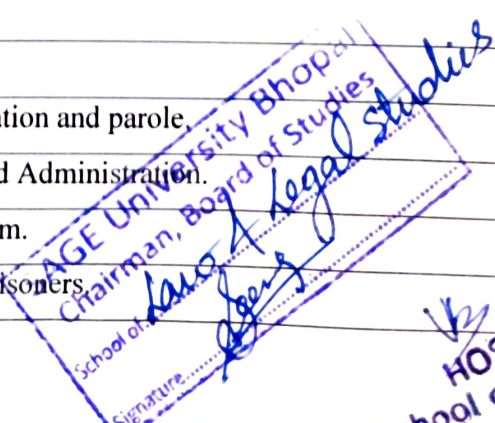 ation and parole,
d Administration.
m.
isoners,
AGE University Bhopal
Chairman, Board of Studies
School of Law & Legal Studies
Signature
HOS
hool